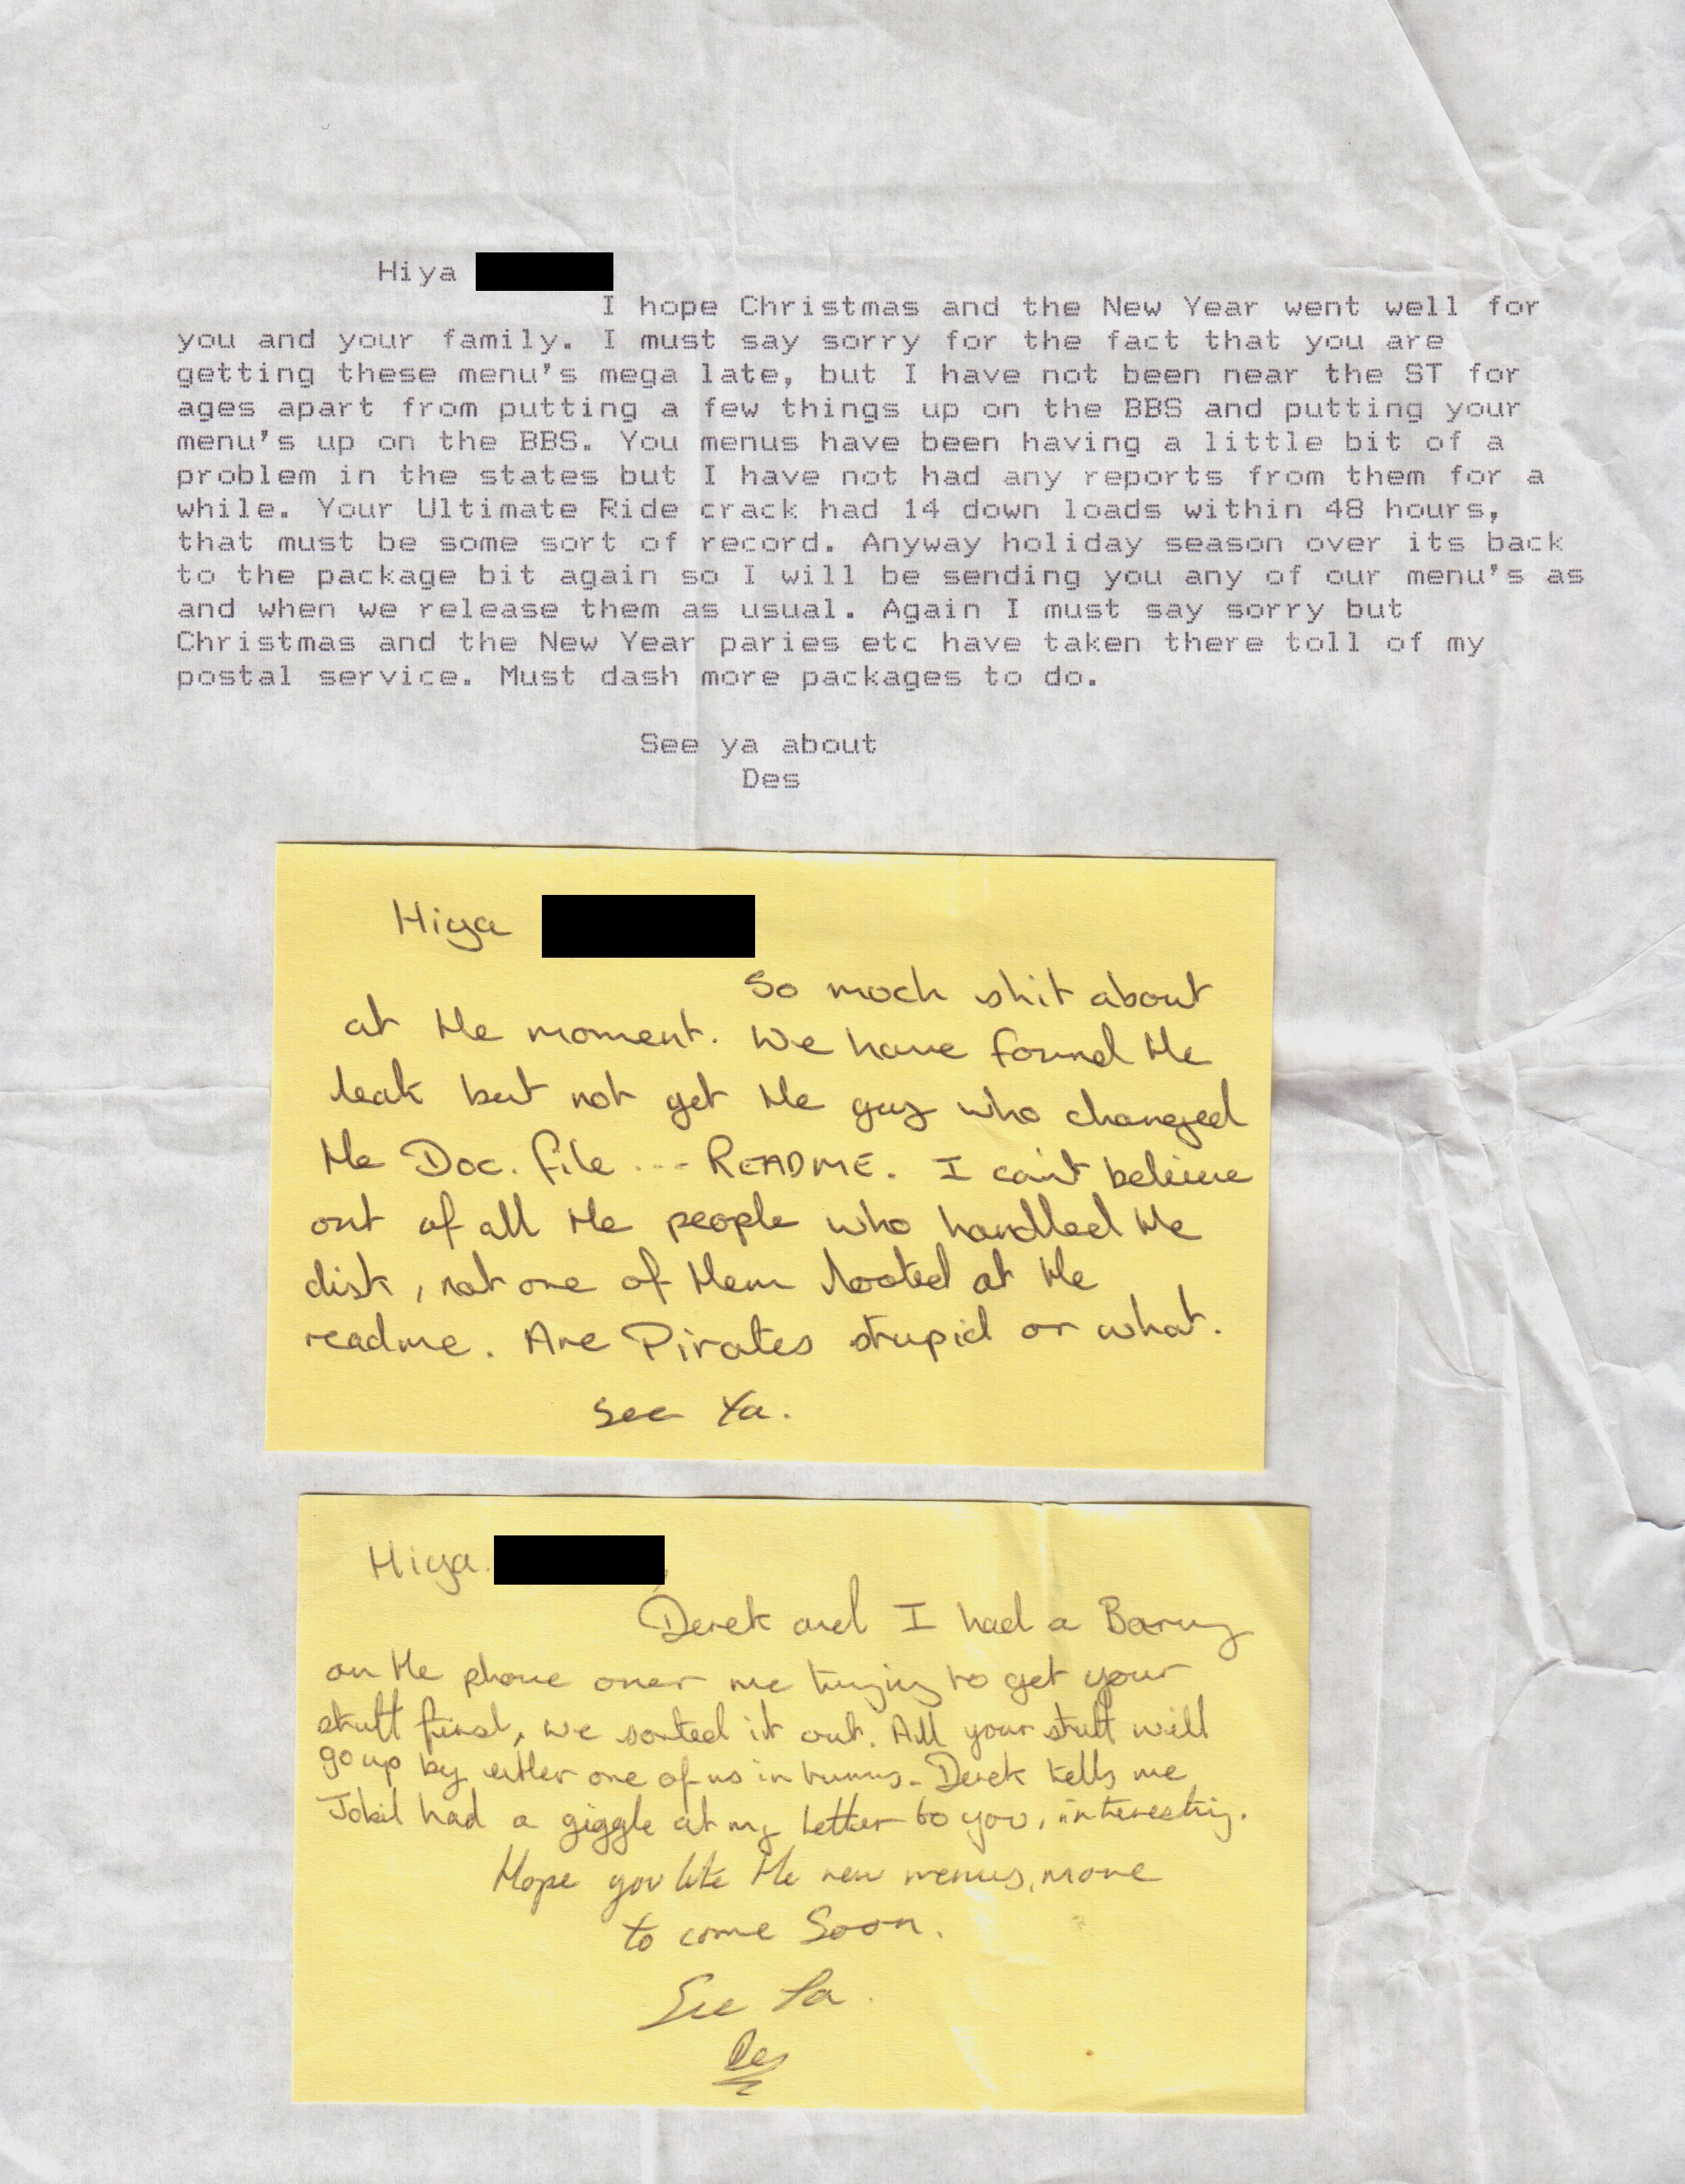 Hiya
I hope Christmas and the New Year went well for
you and your family. I must say sorry for the fact that you are
getting these menu's mega late, but I have not been near the ST for
ages apart from putting a few things up on the BBS and putting your
menu's up on the BBS. You menus have been having a little bit of a
problem in the states but I have not had any reports from them for a
while. Your Ultimate Ride crack had 14 down loads within 48 hours,
that must be some sort of record. Anyway holiday season over its back
to the package bit again so I will be sending you any of our menu's as
and when we release them as usual. Again I must say sorry but
Christmas and the New Year paries etc have taken there toll of my
postal service. Must dash more packages to do.
See ya about
Des
Hiya
So much shit about
at the moment. We have found the
leak but not get the guy who changed
the Doc. file ... README. I can't believe
out of all the people who handled the
disk, not one of them looked at the
readme. Are Pirates stupid or what.
See Ya.
Hiya
Derek and I had a Barny
on the phone over me trying to get your
stuff first, we sorted it out. All your stuff will
go up by either one of us in turns. Derek tells me
had a giggle at my letter to you, interesting.
Hope you like the new menus, more
to come Soon.
See Ya.
Des